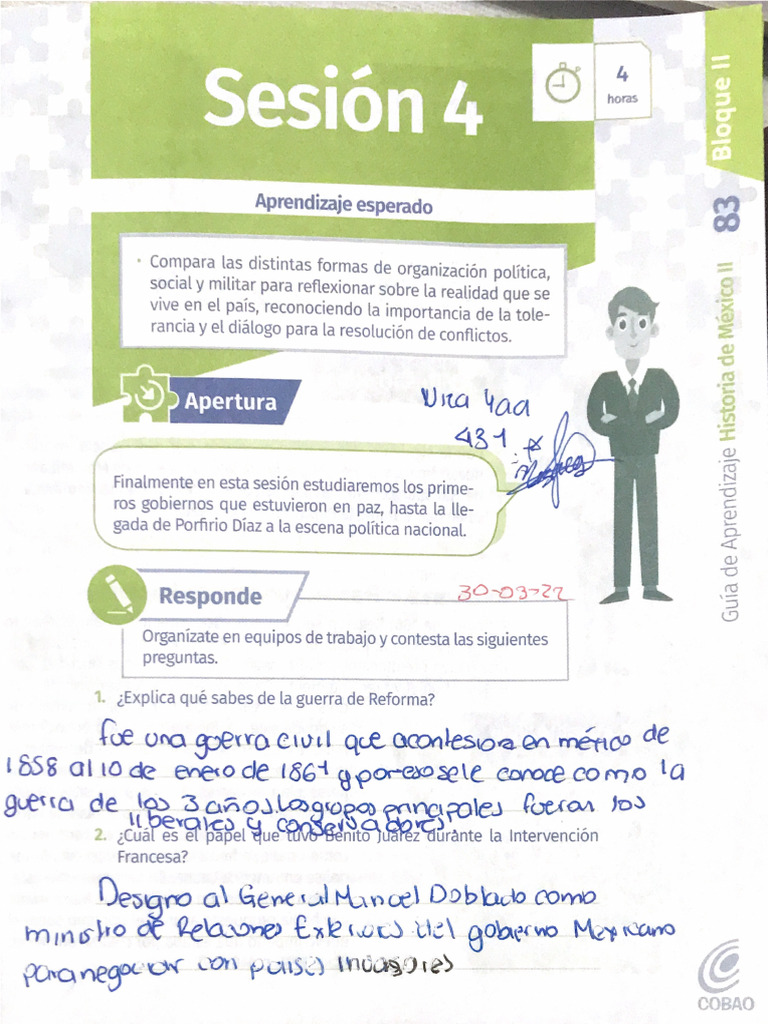 Sesión 4
4
horas
Bloque II
83
Guía de Aprendizaje Historia de México II
Aprendizaje esperado
• Compara las distintas formas de organización política,
social y militar para reflexionar sobre la realidad que se
vive en el país, reconociendo la importancia de la tole-
rancia y el diálogo para la resolución de conflictos.
Apertura
431
Finalmente en esta sesión estudiaremos los prime-
ros gobiernos que estuvieron en paz, hasta la lle-
gada de Porfirio Díaz a la escena política nacional.
Responde
30-03-22
Organízate en equipos de trabajo y contesta las siguientes
preguntas.
1. ¿Explica qué sabes de la guerra de Reforma?
fue una guerra civil que acontesio en méxico de
1858 al 10 de enero de 1861 y por eso se le conoce como la
guerra de los 3 años. Los grupos principales fueron los
liberales y conservadores.
2. ¿Cuál es el papel que tuvo Benito Juárez durante la Intervención
Francesa?
Designo al General Manuel Doblado como
ministro de Relaciones Exteriores del gobierno Mexicano
para negociar con paises
COBAO